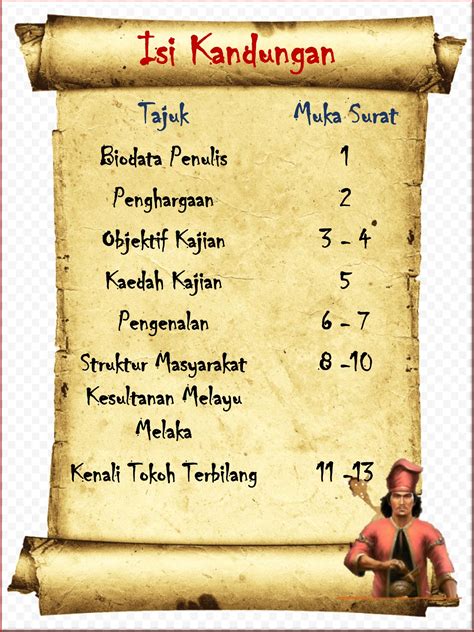 Isi Kandungan
Tajuk Muka Surat
Biodata Penulis 1
Penghargaan 2
Objektif Kajian 3 - 4
Kaedah Kajian 5
Pengenalan 6 - 7
Struktur Masyarakat 8 -10
Kesultanan Melayu
Melaka
Kenali Tokoh Terbilang 11 -13